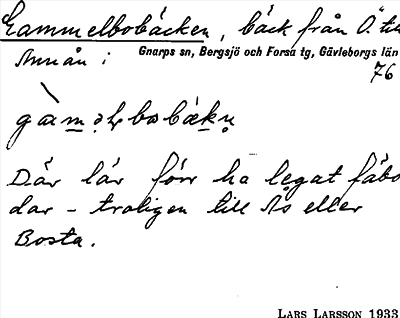 Gammelbobäcken, bäck från Ö. till
Annån i Gnarps sn, Bergsjö och Forsa tg, Gävleborgs län
76
Där lär förr ha legat fäbo
dar - troligen till Ås eller
Bosta.
LARS LARSSON 1933